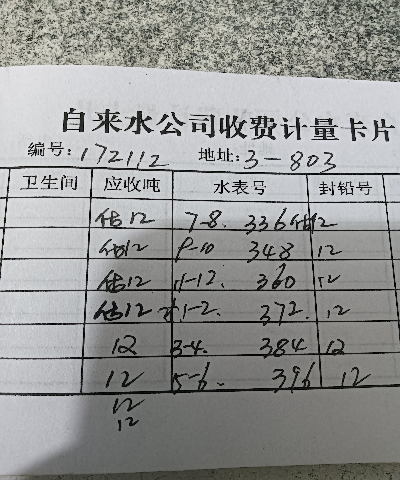 自来水公司收费计量卡片
编号:172112 地址:3-803
卫生间 应收吨 水表号 封铅号
估12 7-8. 336 估12
估12 9-10 348 12
估12 11-12. 360 12
估12 1-2. 372. 12
12 3-4. 384 12
12 5-6. 396 12
12
12